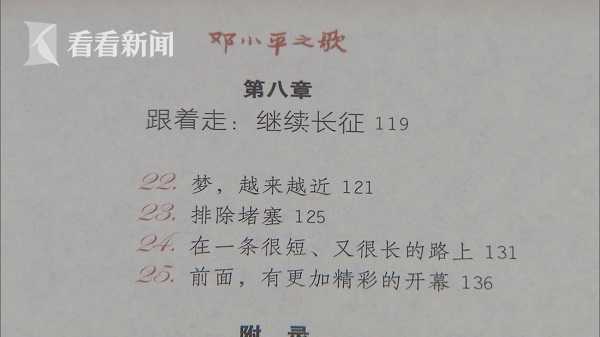 看看新闻
邓小平之歌
第八章
跟着走：继续长征 119
22. 梦，越来越近 121
23. 排除堵塞 125
24. 在一条很短、又很长的路上 131
25. 前面，有更加精彩的开幕 136
附 录